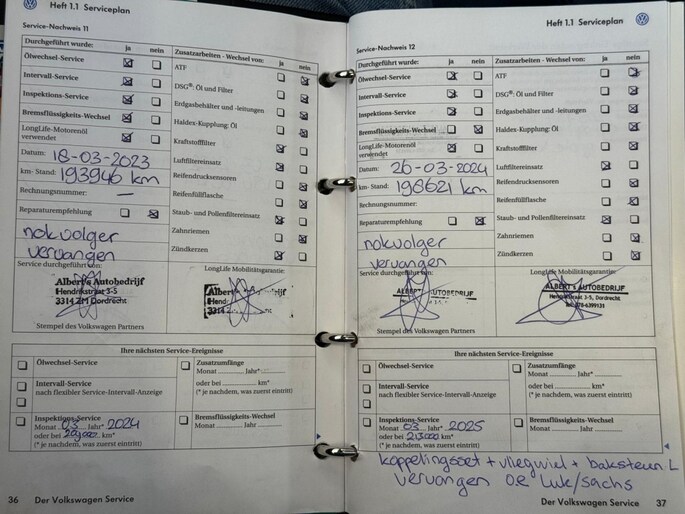 Heft 1.1 Serviceplan
Service-Nachweis 11
Durchgeführt wurde: ja nein
Ölwechsel-Service
Intervall-Service
Inspektions-Service
Bremsflüssigkeits-Wechsel
LongLife-Motorenöl
verwendet
Datum: 18-03-2023
km- Stand: 193946 km
Rechnungsnummer: —
Reparaturempfehlung
nokvolger
vervangen
Service durchgeführt von:
Albert's Autobedrijf
Hendrikstraat 3-5
3314 ZM Dordrecht
Zusatzarbeiten - Wechsel von: ja nein
ATF
DSG®: Öl und Filter
Erdgasbehälter und -leitungen
Haldex-Kupplung: Öl
Kraftstofffilter
Luftfiltereinsatz
Reifendrucksensoren
Reifenfüllflasche
Staub- und Pollenfiltereinsatz
Zahnriemen
Zündkerzen
LongLife Mobilitätsgarantie:
Albert's Autobedrijf
Stempel des Volkswagen Partners
Ihre nächsten Service-Ereignisse
Ölwechsel-Service
Intervall-Service
nach flexibler Service-Intervall-Anzeige
Inspektions-Service
Monat 03 Jahr 2024
oder bei km*
(* je nachdem, was zuerst eintritt)
Zusatzumfänge
Monat Jahr*
oder bei km*
(* je nachdem, was zuerst eintritt)
Bremsflüssigkeits-Wechsel
Monat Jahr
36 Der Volkswagen Service
Heft 1.1 Serviceplan
Service-Nachweis 12
Durchgeführt wurde: ja nein
Ölwechsel-Service
Intervall-Service
Inspektions-Service
Bremsflüssigkeits-Wechsel
LongLife-Motorenöl
verwendet
Datum: 26-03-2024
km- Stand: 198621 km
Rechnungsnummer:
Reparaturempfehlung
nokvolger
vervangen
Service durchgeführt von:
ALBERT'S AUTOBEDRIJF
Zusatzarbeiten - Wechsel von: ja nein
ATF
DSG®: Öl und Filter
Erdgasbehälter und -leitungen
Haldex-Kupplung: Öl
Kraftstofffilter
Luftfiltereinsatz
Reifendrucksensoren
Reifenfüllflasche
Staub- und Pollenfiltereinsatz
Zahnriemen
Zündkerzen
LongLife Mobilitätsgarantie:
ALBERT'S AUTOBEDRIJF
Hendrikstraat 3-5, Dordrecht
Tel. 078-6399131
Stempel des Volkswagen Partners
Ihre nächsten Service-Ereignisse
Ölwechsel-Service
Intervall-Service
nach flexibler Service-Intervall-Anzeige
Inspektions-Service
Monat 03 Jahr 2025
oder bei 213.000 km*
(* je nachdem, was zuerst eintritt)
Zusatzumfänge
Monat Jahr*
oder bei km*
(* je nachdem, was zuerst eintritt)
Bremsflüssigkeits-Wechsel
Monat Jahr
koppelingsset + vliegwiel + baksteun L
vervangen o.e Luk/sachs
Der Volkswagen Service 37